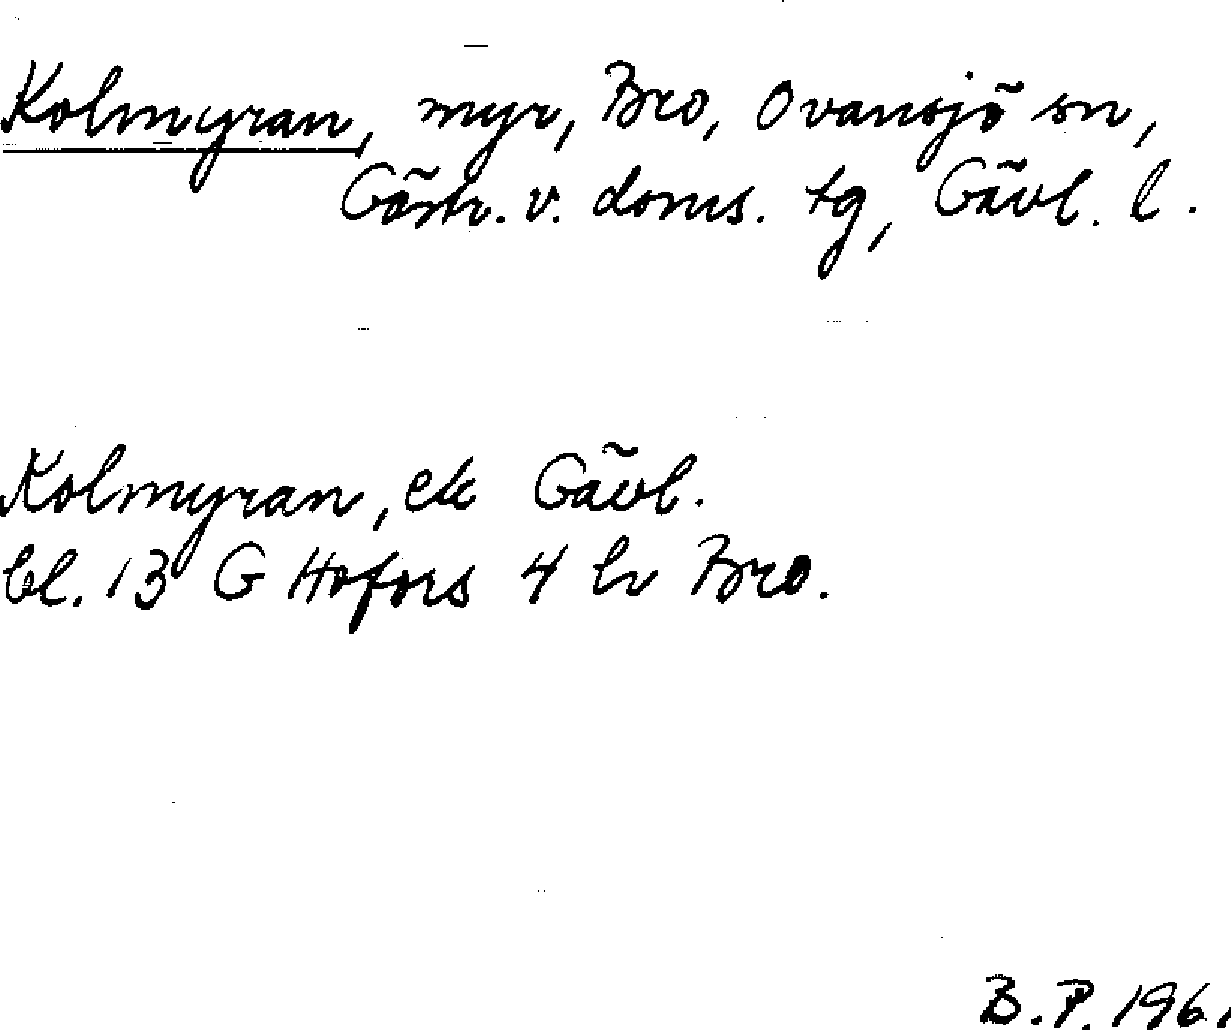 Kolmyran, myr, Bro, Ovansjö sn,
Gästr. v. doms. tg, Gävl. l.
Kolmyran, ek Gävl.
bl. 13 G Hofors 4 h Bro.
B. P. 1961